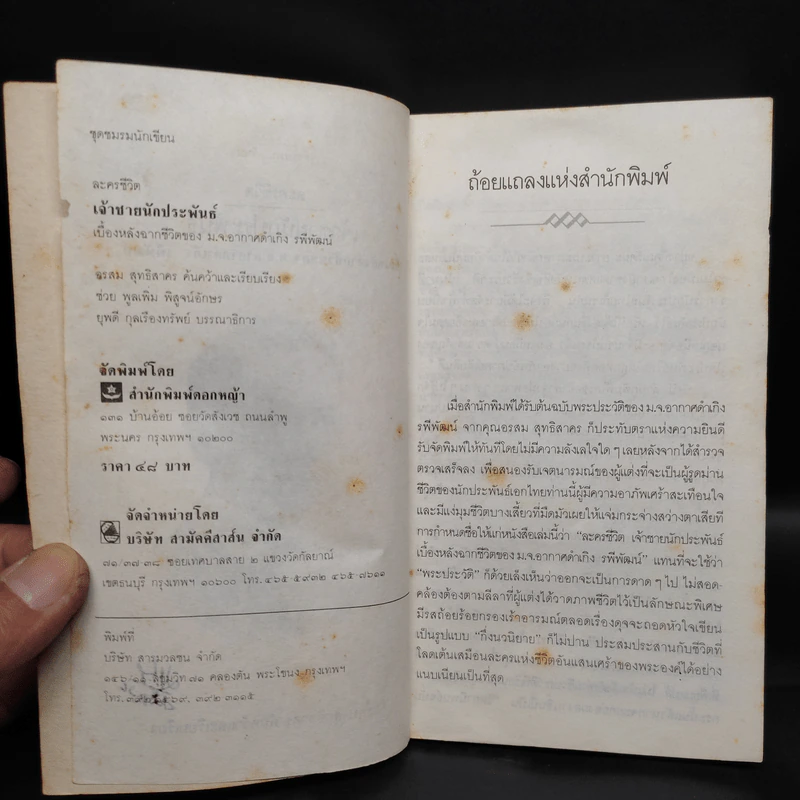 ชุดชมรมนักเขียน
ละครชีวิต
เจ้าชายนักประพันธ์
เบื้องหลังฉากชีวิตของ ม.จ.อากาศดำเกิง รพีพัฒน์
อรสม สุทธิสาคร ค้นคว้าและเรียบเรียง
ช่วย พูลเพิ่ม พิสูจน์อักษร
ยุพดี กุลเรืองทรัพย์ บรรณาธิการ
จัดพิมพ์โดย
สำนักพิมพ์ดอกหญ้า
๑๓๑ บ้านอ้อย ซอยวัดสังเวช ถนนลำพู
พระนคร กรุงเทพฯ ๑๐๒๐๐
ราคา ๔๘ บาท
จัดจำหน่ายโดย
บริษัท สามัคคีสาส์น จำกัด
๗๑/๓๗-๓๘ ซอยเทศบาลสาย ๒ แขวงวัดกัลยาณ์
เขตธนบุรี กรุงเทพฯ ๑๐๖๐๐ โทร.๔๖๕-๕๙๓๒ ๔๖๕-๗๖๑๑
พิมพ์ที่
บริษัท สารมวลชน จำกัด
สุขุมวิท ๗๑ คลองตัน พระโขนง กรุงเทพฯ
๓๙๒-๓๑๑๕
ถ้อยแถลงแห่งสำนักพิมพ์
เมื่อสำนักพิมพ์ได้รับต้นฉบับพระประวัติของ ม.จ.อากาศดำเกิง
รพีพัฒน์ จากคุณอรสม สุทธิสาคร ก็ประทับตราแห่งความยินดี
รับจัดพิมพ์ให้ทันทีโดยไม่มีความลังเลใจใด ๆ เลยหลังจากได้สำรวจ
ตรวจเสร็จลง เพื่อสนองรับเจตนารมณ์ของผู้แต่งที่จะเป็นผู้รูดม่าน
ชีวิตของนักประพันธ์เอกไทยท่านนี้ผู้มีความอาภัพเศร้าสะเทือนใจ
และมีแง่มุมชีวิตบางเสี้ยวที่มืดมัวเผยให้แจ่มกระจ่างสว่างตาเสียที
การกำหนดชื่อให้แก่หนังสือเล่มนี้ว่า “ละครชีวิต เจ้าชายนักประพันธ์
เบื้องหลังฉากชีวิตของ ม.จ.อากาศดำเกิง รพีพัฒน์” แทนที่จะใช้ว่า
“พระประวัติ” ก็ด้วยเล็งเห็นว่าออกจะเป็นการดาด ๆ ไป ไม่สอด-
คล้องต้องตามลีลาที่ผู้แต่งได้วาดภาพชีวิตไว้เป็นลักษณะพิเศษ
มีรสถ้อยร้อยกรองเร้าอารมณ์ตลอดเรื่องดุจจะถอดหัวใจเขียน
เป็นรูปแบบ “กึ่งนวนิยาย” ก็ไม่ปาน ประสมประสานกับชีวิตที่
โลดเต้นเสมือนละครแห่งชีวิตอันแสนเศร้าของพระองค์ได้อย่าง
แนบเนียนเป็นที่สุด